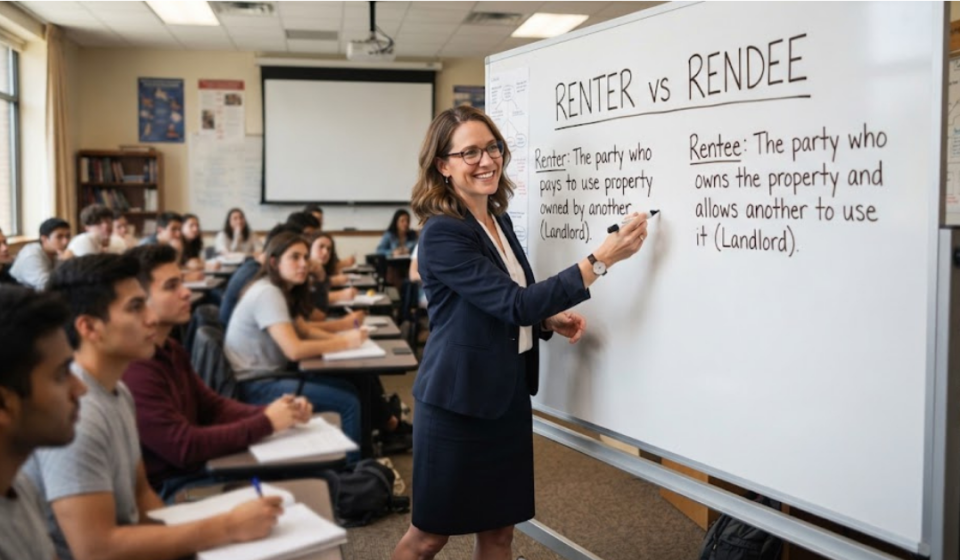 RENTER vs RENDEE
Renter: The party who
pays to use property
owned by another
(Landlord).
Rentee: The party who
owns the property and
allows another to use
it (Landlord).